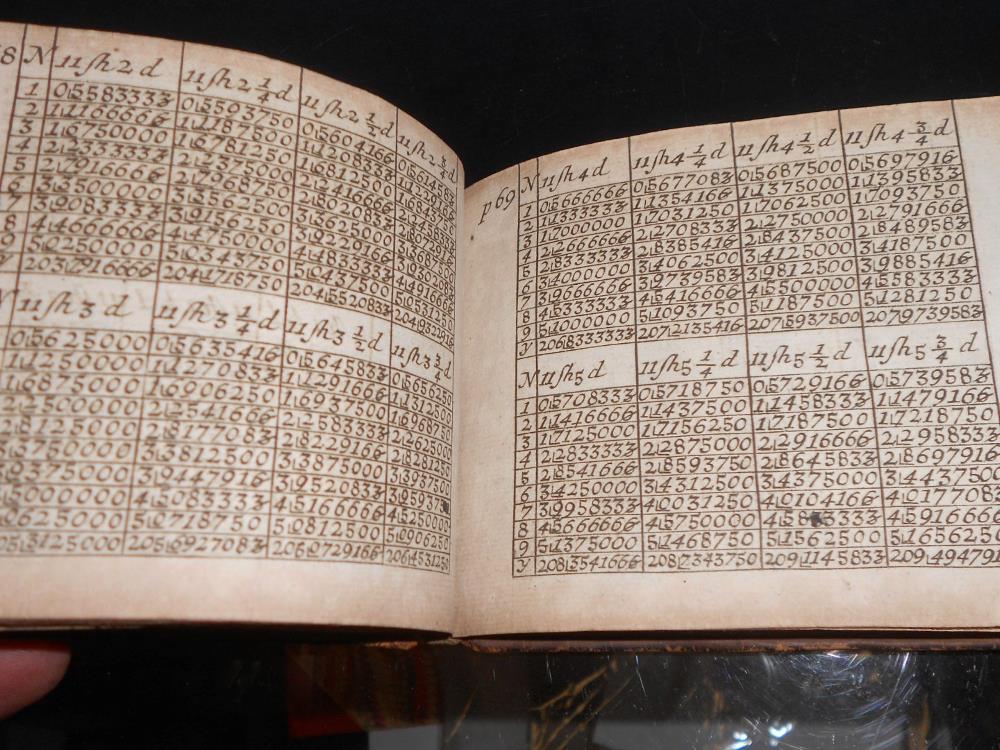 8 N 11 sh 2 d 11 sh 2 1/4 d 11 sh 2 1/2 d 11 sh 2 3/4 d
1 0|5583333 0|5593750 0|5604166 0|561458
2 1|1166666 1|1187500 1|1208333 1|122916
3 1|6750000 1|6781250 1|6812500 1|684375
4 2|2333333 2|2375000 2|2416666 2|245833
5 2|7916666 2|7968750 2|8020833 2|807291
6 3|3500000 3|3562500 3|3625000 3|368750
7 3|9083333 3|9156250 3|9229166 3|930208
8 4|4666666 4|4750000 4|4833333 4|491666
9 5|0250000 5|0343750 5|0437500 5|053125
Y 203|7916666 204|1718750 204|5520833 204|932291
N 11 sh 3 d 11 sh 3 1/4 d 11 sh 3 1/2 d 11 sh 3 3/4 d
0|5625000 0|5635416 0|5645833 0|565625
1|1250000 1|1270833 1|1291666 1|131250
1|6875000 1|6906250 1|6937500 1|696875
2|2500000 2|2541666 2|2583333 2|262500
2|8125000 2|8177083 2|8229166 2|828125
3|3750000 3|3812500 3|3875000 3|393750
3|9375000 3|9447916 3|9520833 3|959375
4|5000000 4|5083333 4|5166666 4|525000
5|0625000 5|0718750 5|0812500 5|090625
205|3125000 205|6927083 206|0729166 206|453125
p 69 N 11 sh 4 d 11 sh 4 1/4 d 11 sh 4 1/2 d 11 sh 4 3/4 d
1 0|5666666 0|5677083 0|5687500 0|5697916
2 1|1333333 1|1354166 1|1375000 1|1395833
3 1|7000000 1|7031250 1|7062500 1|7093750
4 2|2666666 2|2708333 2|2750000 2|2791666
5 2|8333333 2|8385416 2|8437500 2|8489583
6 3|4000000 3|4062500 3|4125000 3|4187500
7 3|9666666 3|9739583 3|9812500 3|9885416
8 4|5333333 4|5416666 4|5500000 4|5583333
9 5|1000000 5|1093750 5|1187500 5|1281250
Y 206|8333333 207|2135416 207|5937500 207|9739583
N 11 sh 5 d 11 sh 5 1/4 d 11 sh 5 1/2 d 11 sh 5 3/4 d
1 0|5708333 0|5718750 0|5729166 0|5739583
2 1|1416666 1|1437500 1|1458333 1|1479166
3 1|7125000 1|7156250 1|7187500 1|7218750
4 2|2833333 2|2875000 2|2916666 2|2958333
5 2|8541666 2|8593750 2|8645833 2|8697916
6 3|4250000 3|4312500 3|4375000 3|4437500
7 3|9958333 4|0031250 4|0104166 4|0177083
8 4|5666666 4|5750000 4|5833333 4|5916666
9 5|1375000 5|1468750 5|1562500 5|1656250
Y 208|3541666 208|7343750 209|1145833 209|49479